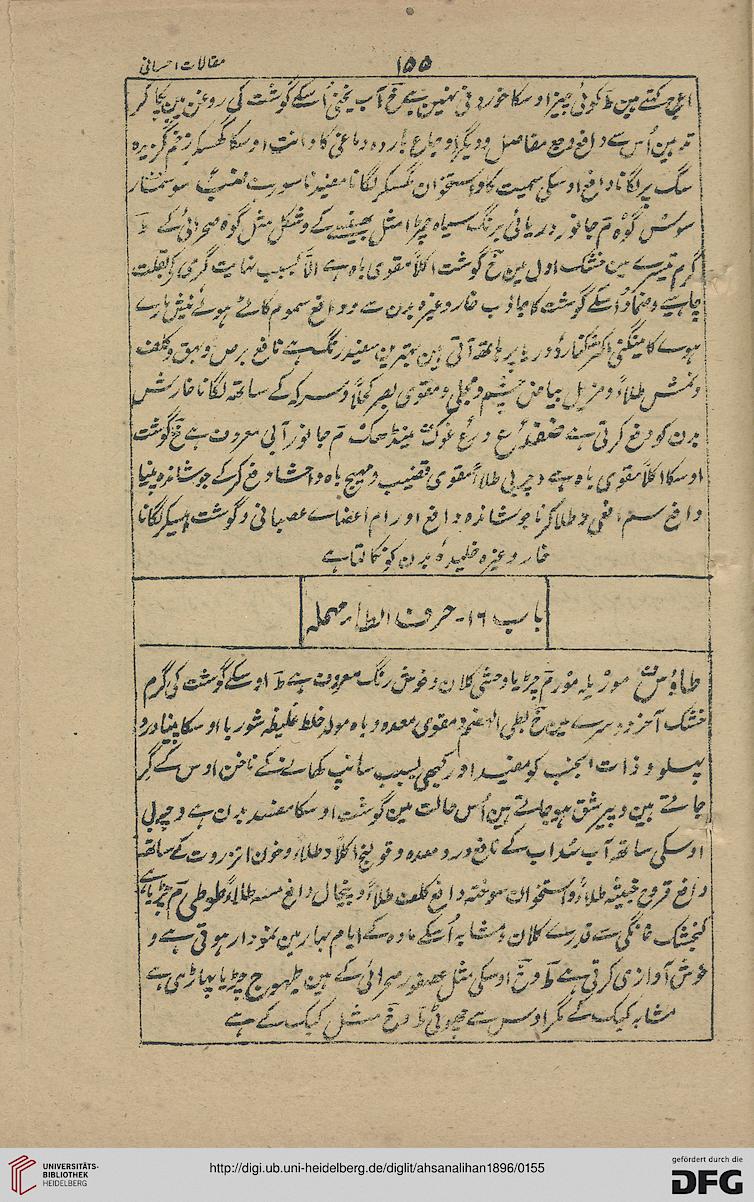 ۱۵۵ مقالات احسانی
کہتے ہین ط کوئی چیز اوسکا خوردنی نہین ہے خ آب یخنی اسکے گوشت کی روغن مین پکا کر
مفاصل و دیگر اوجاع باردہ دماغی کا دانت اوسکا گھسکر زخم گزیدہ
سگ پر لگانا دافع اوسکی سمیت کا و استخوان گھسکر لگانا مفید ناسور ہے
سوس گوہ م جانور دریائی برنگ سیاہ چمڑا مثل بھینس کے و شکل مثل گوہ صحرائی کے ط
گرم تیسرے مین خشک اول مین خ گوشت اکلاً مقوی باہ ہے الا بسبب نہایت گرمی کی بقلت
چاہیے و ضماداً اسکے گوشت کا جاذب خار وغیرہ بدن سے و دافع سموم کاٹے ہوئے نیش دار
مینگنی اکثر کنارہ دریا پر ہاتھ آتی ہین بہترین سفید رنگ ہے نافع برص و بہق و کلف
و نمش طلاءً و مزیل بیاض چشم و مجلی و مقوی بصر کحلاً و سرکہ کے ساتھ لگانا خارش
بدن کو دفع کرتی ہے ضفدع ع وزغ غوک مینڈھک م جانور آبی معروف ہے خ گوشت
اوسکا اکلاً مقوی باہ ہے و چربی طلاءً مقوی قضیب و مہیج باہ و احشا دفع کرکے جوشاندہ پینا
دافع سم افعی و طلا کرنا جوشاندہ دافع اورام اعضاے عصبانی و گوشت پیسکر لگانا
خار وغیرہ خلیدہ بدن کو نکالتا ہے
باب ۱۶- حرف الطاء مہملہ
طاؤس مور م چڑیا وحشی کلان و خوش رنگ معروف ہے ط اوسکے گوشت کی گرم
خشک آخر دوسرے مین خ بطی الہضم و مقوی معدہ و باہ مولد خلط غلیظ شوربا اوسکا پینا درد
پہلو و ذات الجنب کو مفید اور کبھی بسبب سانپ کھانے کے ناخن اوسکے گر
جاتے ہین و پیر شق ہو جاتے ہین اس حالت مین گوشت اوسکا مفسد بدن ہے و چربی
اوسکی ساتھ آب سداب کے نافع درد معدہ و قولنج اکلاً و طلاءً و خون انزروت کے ساتھ
دافع قروح خبیثہ طلاءً و استخوان سوختہ دافع کلف طلاءً و پیخال دافع مسہ طلاءً طوطی م چڑیا ہے
کنجشک خانگی سے قدرے کلان و مشابہ اسکے مادہ کے ایام بہار مین نمودار ہوتی ہے و
خوش آوازی کرتی ہے ط و خ اوسکی مثل عصفور صحرائی کے ہین طیہوج چڑیا پہاڑی ہے
مشابہ کبک کے مگر اوس سے چھوٹی ط و خ مثل کبک کے ہے
UNIVERSITÄTS-
BIBLIOTHEK
HEIDELBERG
http://digi.ub.uni-heidelberg.de/diglit/ahsanalihan1896/0155
gefördert durch die
DFG